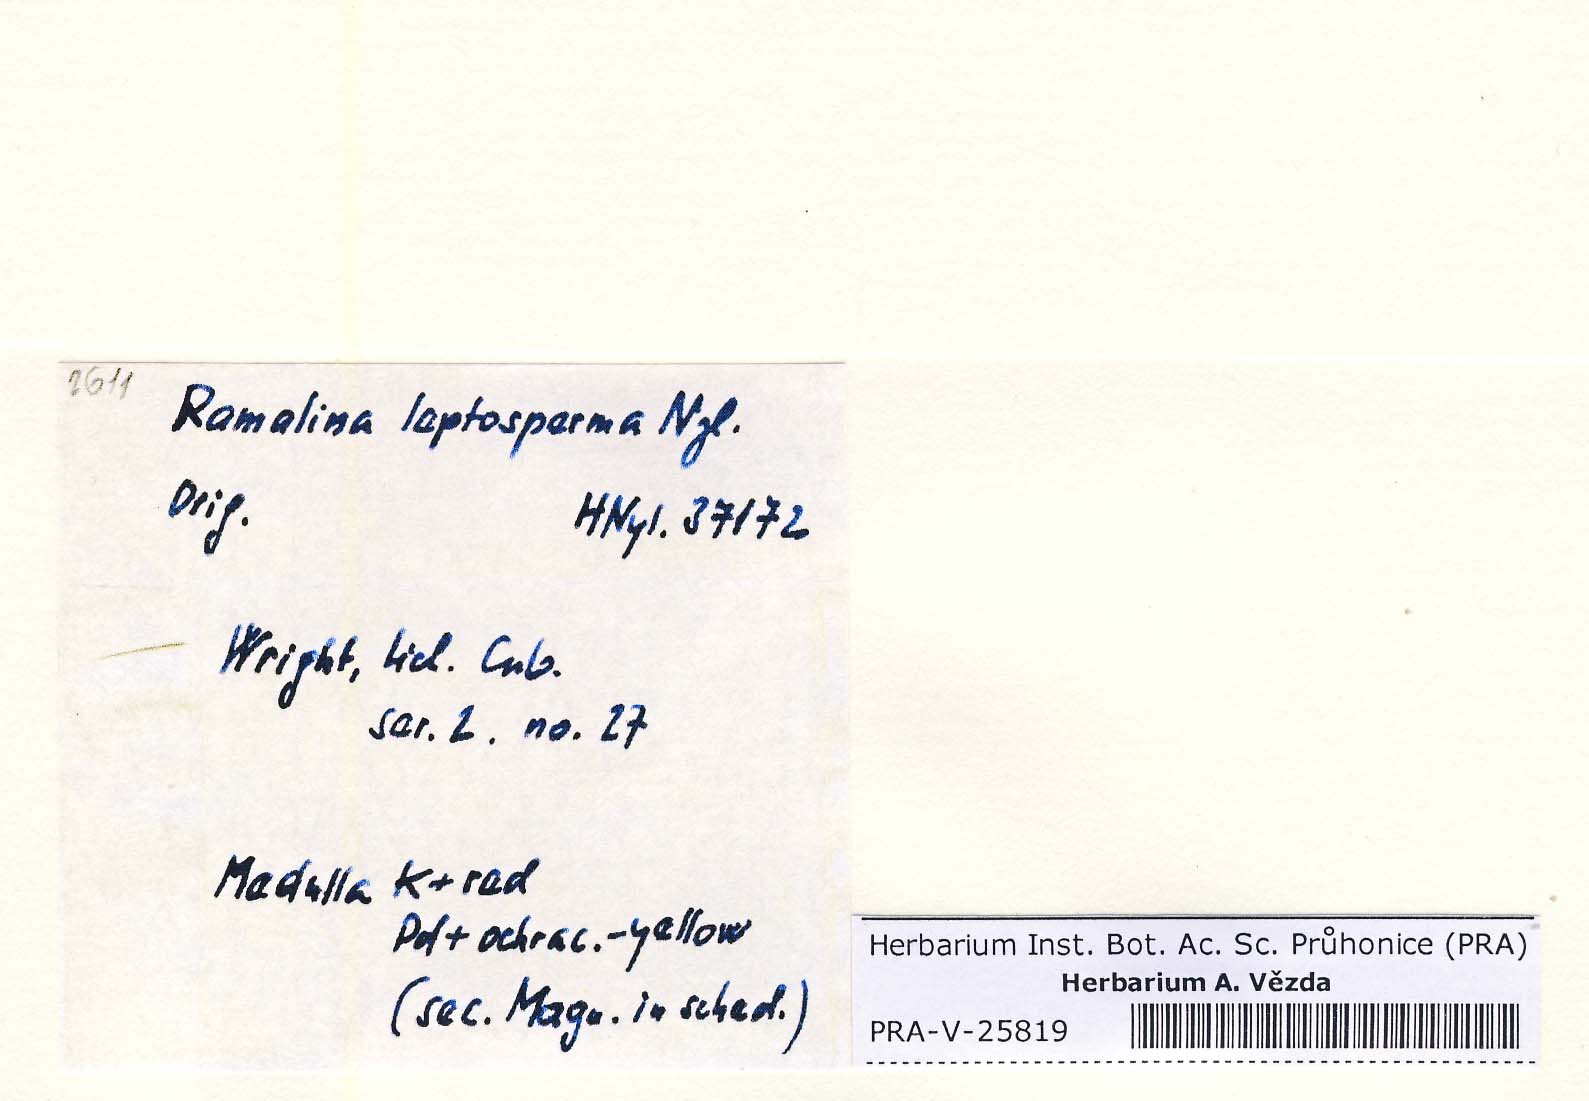 2611
Ramalina leptosperma Nyl.
Orig. HNyl. 37172
Wright, Lich. Cub.
ser. 2. no. 27
Medulla K+ red
Pd+ ochrac.-yellow
(sec. Magn. in sched.)
Herbarium Inst. Bot. Ac. Sc. Průhonice (PRA)
Herbarium A. Vězda
PRA-V-25819